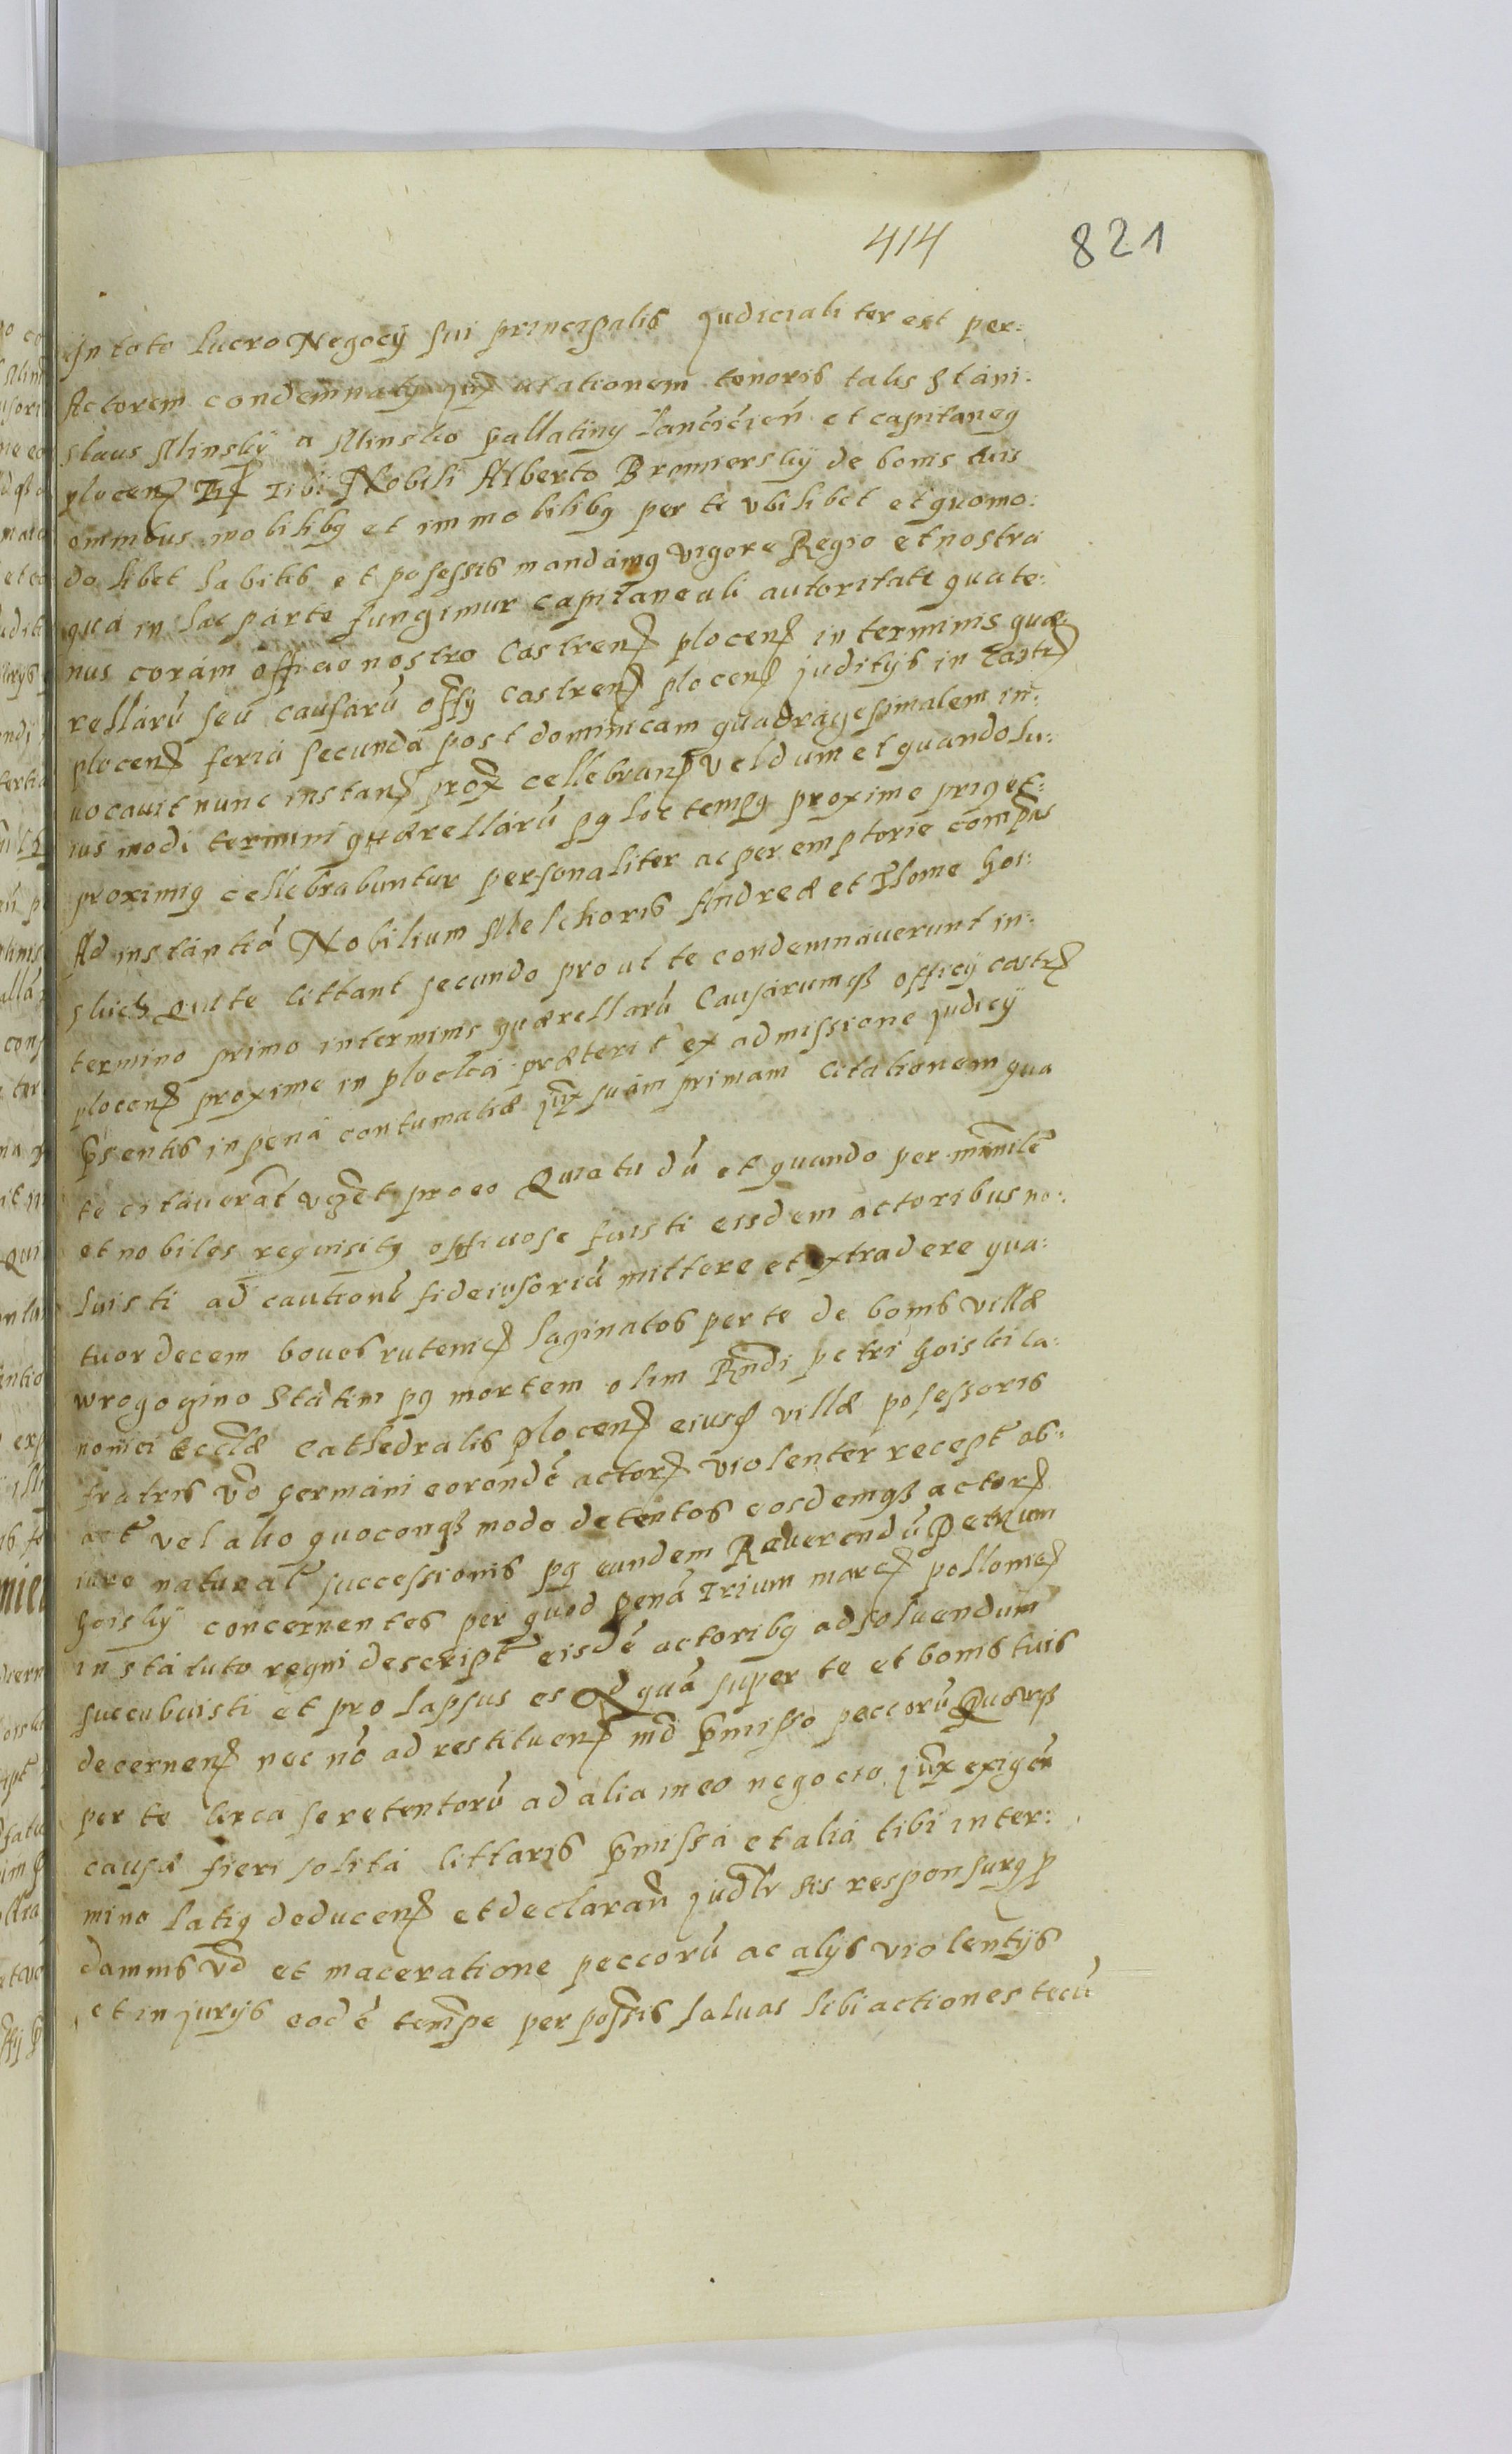 414 821
in toto lucro Negocÿ sui principalis judicialiter est per:
Actorem condemnatꝯ juxͣ citationem tenoris talis Stani:
slaus Minskÿ a Minsko pallatinꝯ Lancicień et capitaneꝯ
plocenꝭ Tibi Nobili Alberto Bromierskÿ de bonis tuis
omnibus mobilibꝯ et immobilibꝯ per te vbilibet et quomo:
do libet habitis et posessis mandamꝯ vigore Regio et nostra
qua in hac parte fungimur capitaneali autoritate quate:
nus coram officio nostro Castrenꝭ plocenꝭ in terminis quæ:
rellarū seu causarū offÿ castrenꝭ plocenꝭ juditÿs in Castrꝭ
plocenꝭ feria secunda post dominicam quadragesimalem in:
uocauit nunc instanꝭ prox̄ cellebranꝭ vel dum et quando hu:
ius modi termini quærellarū pꝯ hoc tempꝯ proxime priꝯ et:
proximiꝯ cellebrabuntur personaliter ac peremptorie compas
Ad instantiā Nobilium Melchioris Andreæ et Thome hoi:
skich Qui te cittant secundo prout te condemnauerunt in:
termino primo interminis quærellarū Causarumqꝫ officÿ castrꝭ
plocenꝭ proxime in plocka præterit ex admissione judicÿ
p̄sentis in pena contumatiæ juxͣ suam primam citationem qua
te citauerāt vꝫ et pro eo Quia tu dū et quando per minīlē
et nobiles requisitꝯ officiose fuisti eisdem actoribus no:
luisti ad cautionē fideiusoriā mittere et extradere qua:
tuordecem boues rutenicꝭ saginatos per te de bonis villæ
wrogocino Statim pꝯ mortem olim Rn̄di petri hoiski ca:
nonici Eccłæ Cathedralis plocenꝭ eiusꝺ villæ posessoris
fratris v̄o germani eorundē actorꝭ violenter recept̄ ab:
act̄ vel alio quocunqꝫ modo detentos eosdemqꝫ actorꝭ
iure natural̄ successionis pꝯ eundem Reuerendū Petrum
hoiskÿ concernentes per quod penā Trium marcꝭ pollonicꝭ
in statuto regni descript̄ eisdē actoribꝯ ad soluendum
succubuisti et prolapsus es Ad quā super te et bonis tuis
decernenꝭ nec nō ad restituenꝭ m̄d p̄misso peccorū quorūqꝫ
per te circa se retentorū ad alia in eo negocio juxͣ exigēn
causæ fieri solita littaris p̄missa et alia tibi in ter:
mino latiꝯ deducenꝭ et declarań jud̄lr sis responsurꝯ p̄
damnis v̄o et maceratione peccorū ac alÿs violentÿs
et injurÿs eodē temp̄e perpessis saluas sibi actiones tecū